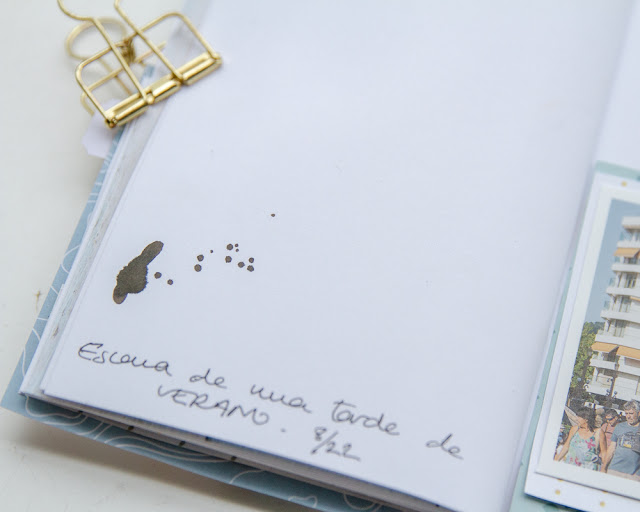 Escena de una tarde de
VERANO. 8/22